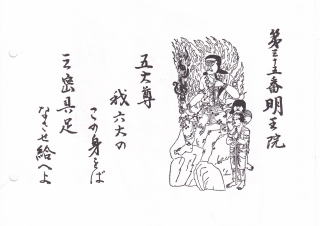 第三十五番 明王院
五大尊
我六大の
この身をば
三密具足
なさせ給へよ